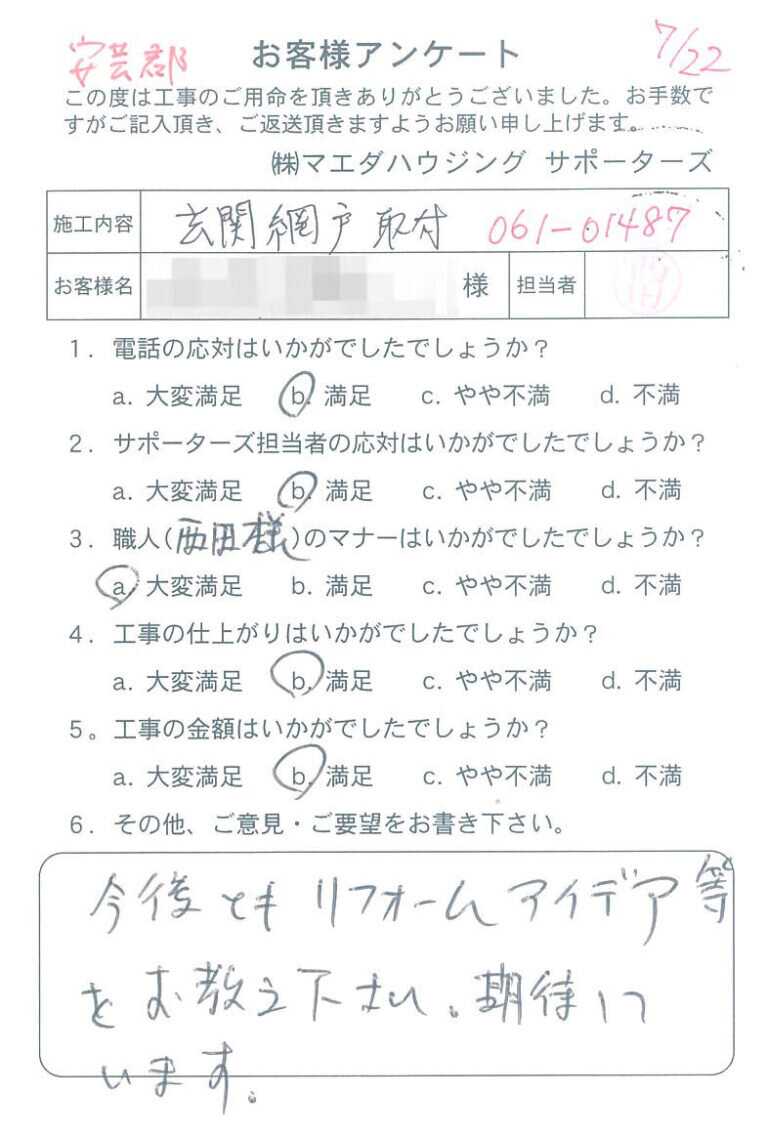 安芸郡 お客様アンケート 7/22
この度は工事のご用命を頂きありがとうございました。お手数で
すがご記入頂き、ご返送頂きますようお願い申し上げます。
㈱マエダハウジング サポーターズ
施工内容 玄関網戸取付 061-01487
お客様名 様 担当者 西田
1. 電話の応対はいかがでしたでしょうか?
a. 大変満足 b. 満足 c. やや不満 d. 不満
2. サポーターズ担当者の応対はいかがでしたでしょうか?
a. 大変満足 b. 満足 c. やや不満 d. 不満
3. 職人(西田様)のマナーはいかがでしたでしょうか?
a. 大変満足 b. 満足 c. やや不満 d. 不満
4. 工事の仕上がりはいかがでしたでしょうか?
a. 大変満足 b. 満足 c. やや不満 d. 不満
5。工事の金額はいかがでしたでしょうか?
a. 大変満足 b. 満足 c. やや不満 d. 不満
6. その他、ご意見・ご要望をお書き下さい。
今後ともリフォームアイデア等
をお教え下さい。期待して
います。